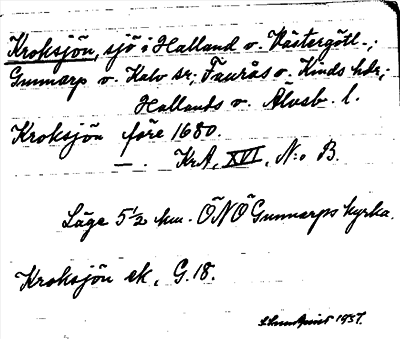 Kroksjön, sjö i Halland o. Västergötl.;
Gunnarp o. Kalv sr; Faurås o. Kinds hdr;
Hallands o. Älvsb. l.
Kroksjön före 1680.
— . KrA, XVI, N:o B.
Läge 5 1/2 km. ÖNÖ Gunnarps kyrka.
Kroksjön ek. G. 18.
1937.